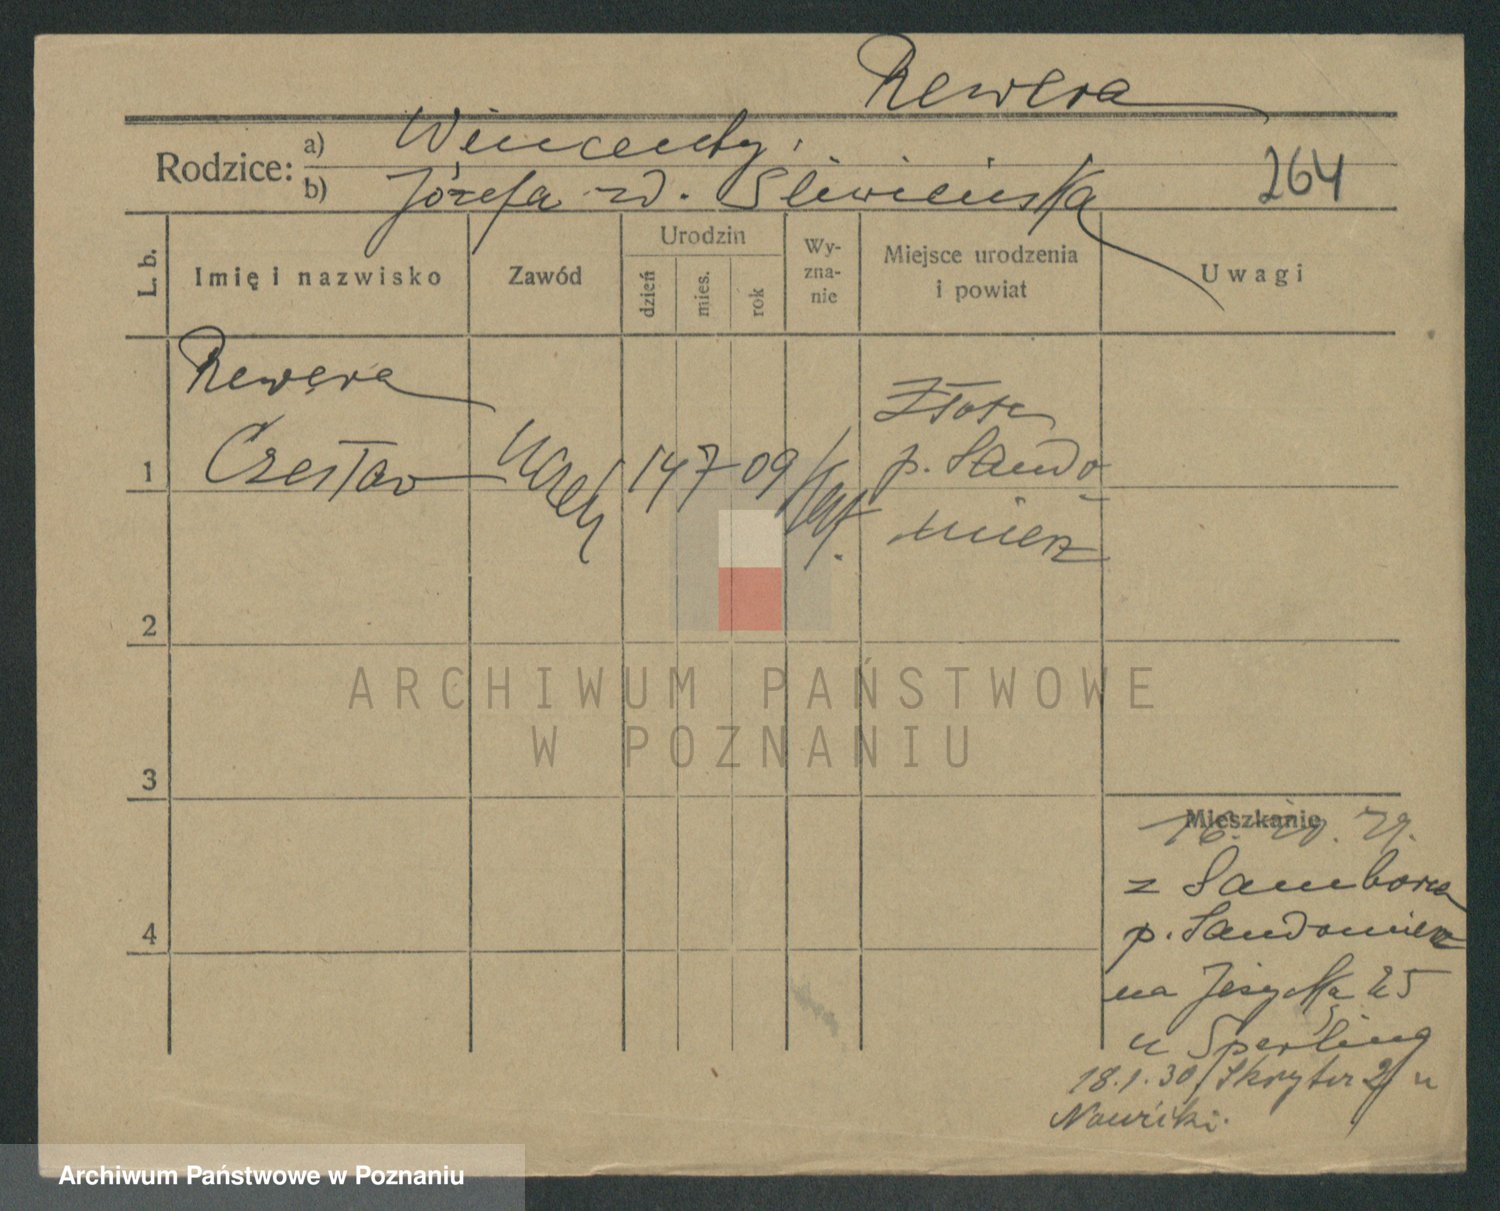 Rewera
Rodzice: a) Wincenty.
b) Józefa zd. Śliwińska
264
L. b.
Imię i nazwisko
Zawód
Urodzin
dzień
mies.
rok
Wy-
zna-
nie
Miejsce urodzenia
i powiat
Uwagi
Rewera
Złota
1 Czesław 14 7 09
p. Sando
mierz
2
ARCHIWUM PAŃSTWOWE
W POZNANIU
3
Mieszkanie
29.
z Samborca
p. Sandomierz
4
na 25
u Sperling
18.1.30 u
Nowicki.
Archiwum Państwowe w Poznaniu